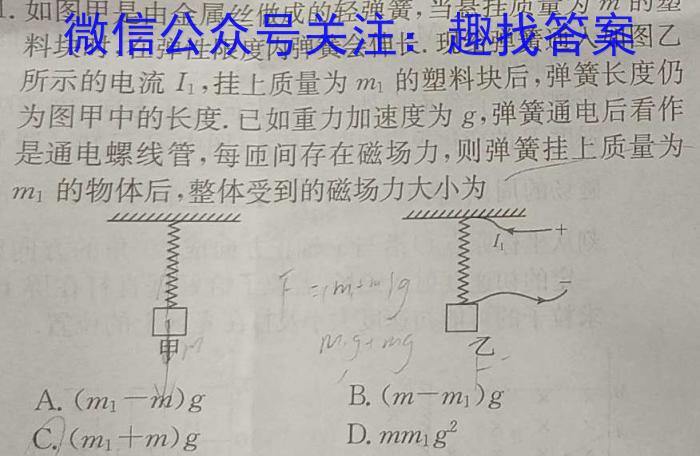 1. 如图甲是由金属丝做成的轻弹簧，当悬挂质量为 m 的塑
微信公众号关注：趣找答案
料块 弹簧会伸长. 图乙
所示的电流 I₁，挂上质量为 m₁ 的塑料块后，弹簧长度仍
为图甲中的长度. 已如重力加速度为 g，弹簧通电后看作
是通电螺线管，每匝间存在磁场力，则弹簧挂上质量为
m₁ 的物体后，整体受到的磁场力大小为
I₁ +
−
F=(m₁+m)g
m₁g+mg
甲 m 乙
A. (m₁−m)g B. (m−m₁)g
C. (m₁+m)g D. mm₁g²